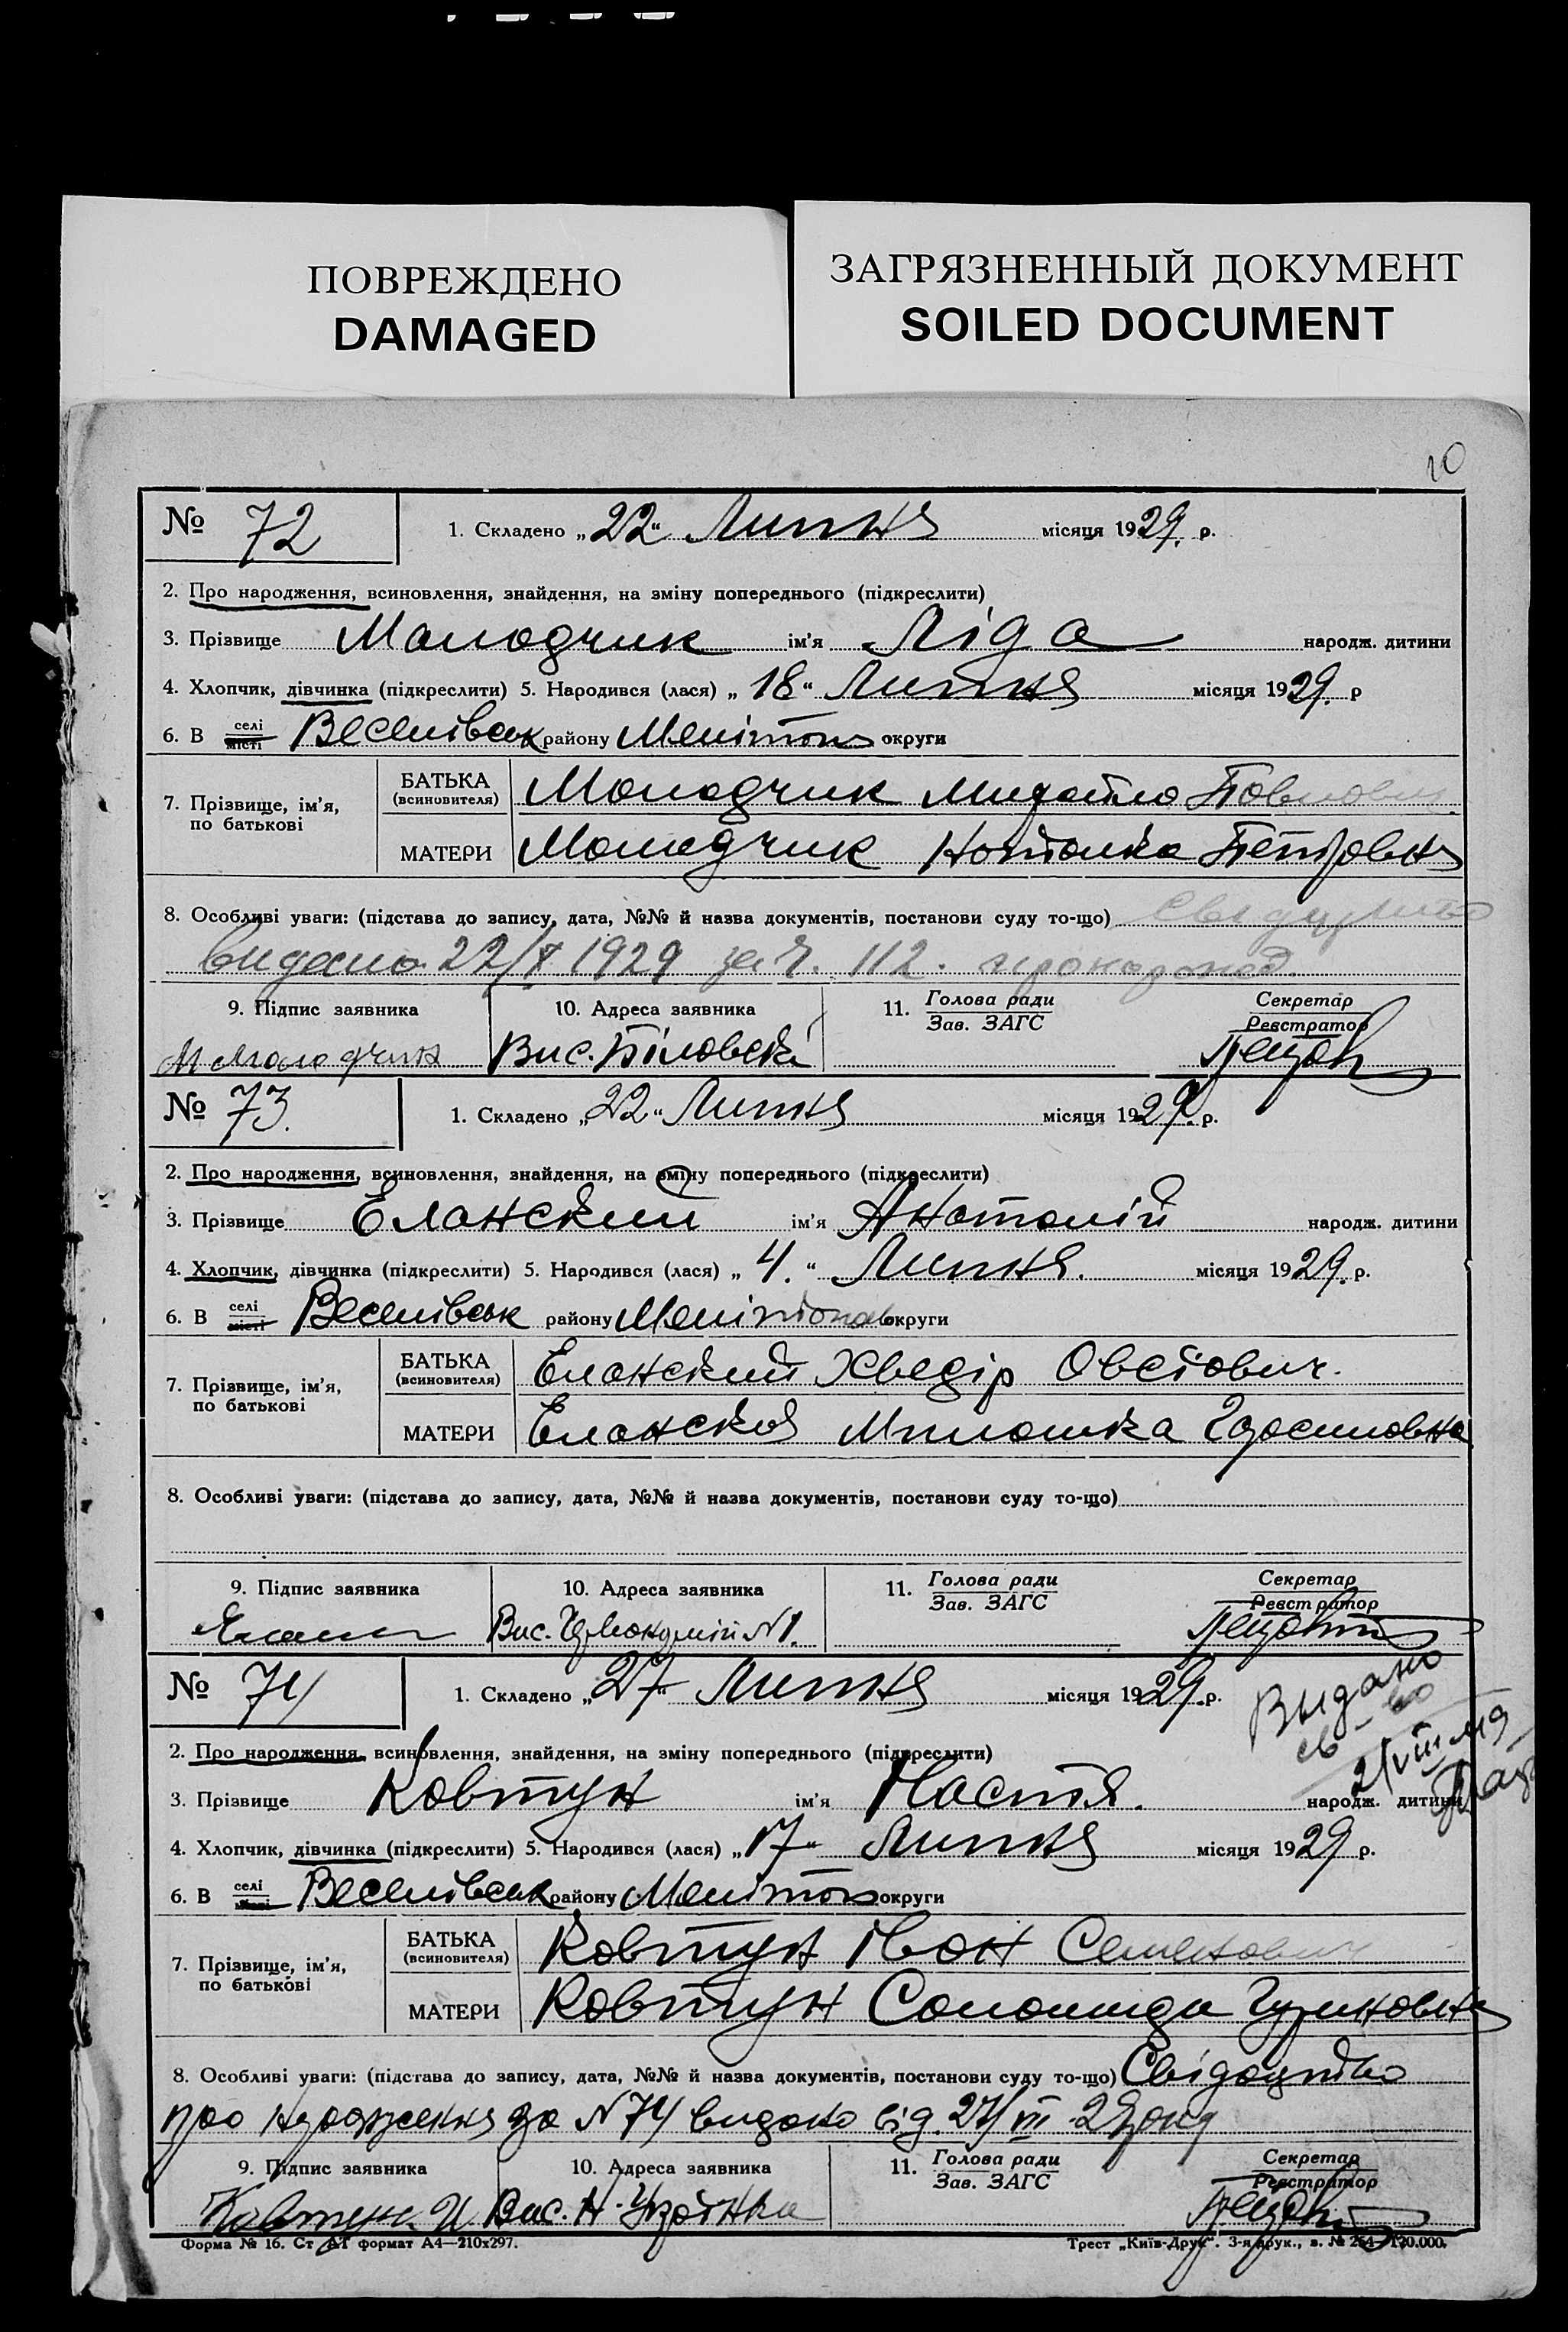 ПОВРЕЖДЕНО
DAMAGED
ЗАГРЯЗНЕННЫЙ ДОКУМЕНТ
SOILED DOCUMENT
10
№ 72 1. Складено „22“ Липня місяця 1929. р.
2. Про народження, всиновлення, знайдення, на зміну попереднього (підкреслити)
3. Прізвище Молодчик ім'я Ліда народж. дитини
4. Хлопчик, дівчинка (підкреслити) 5. Народився (лася) „18“ Липня місяця 1929. р
6. В селі місті Веселівськ району Мелітоп округи
7. Прізвище, ім'я, по батькові
БАТЬКА (всиновителя) Молодчик Михайло Павлович
МАТЕРИ Молодчик Наталка Петровна
8. Особливі уваги: (підстава до запису, дата, №№ й назва документів, постанови суду то-що)
видано 22/X 1929 за ч. 112.
9. Підпис заявника 10. Адреса заявника 11. Голова ради Зав. ЗАГС Секретар Реєстратор
М Молодчик Вис. Біловські
№ 73. 1. Складено „22“ Липня місяця 1929. р.
2. Про народження, всиновлення, знайдення, на зміну попереднього (підкреслити)
3. Прізвище Еланский ім'я Анатолій народж. дитини
4. Хлопчик, дівчинка (підкреслити) 5. Народився (лася) „4.“ Липня. місяця 1929. р.
6. В селі місті Веселівськ району Мелітопол округи
7. Прізвище, ім'я, по батькові
БАТЬКА (всиновителя) Еланский Хведір Овсійович.
МАТЕРИ Еланская
8. Особливі уваги: (підстава до запису, дата, №№ й назва документів, постанови суду то-що)
9. Підпис заявника 10. Адреса заявника 11. Голова ради Зав. ЗАГС Секретар Реєстратор
Вис. N 1.
№ 74 1. Складено „27“ Липня місяця 1929. р.
Выдано
св-во
21/VIII 49
2. Про народження, всиновлення, знайдення, на зміну попереднього (підкреслити)
3. Прізвище Ковтун ім'я Настя. народж. дитини
4. Хлопчик, дівчинка (підкреслити) 5. Народився (лася) „17“ Липня місяця 1929 р.
6. В селі місті Веселівськ району Мелітоп округи
7. Прізвище, ім'я, по батькові
БАТЬКА (всиновителя) Ковтун Іван Семенович
МАТЕРИ Ковтун Соломида
8. Особливі уваги: (підстава до запису, дата, №№ й назва документів, постанови суду то-що) Свідоцтво
про народження за N 74 видано від 27/VII 29 року
9. Підпис заявника 10. Адреса заявника 11. Голова ради Зав. ЗАГС Секретар Реєстратор
Ковтун И Вис. Н-Українка
Форма № 16. Ст АТ формат А4—210х297. Трест „Київ-Друк“. 3-я друк., з. № 254—120.000.